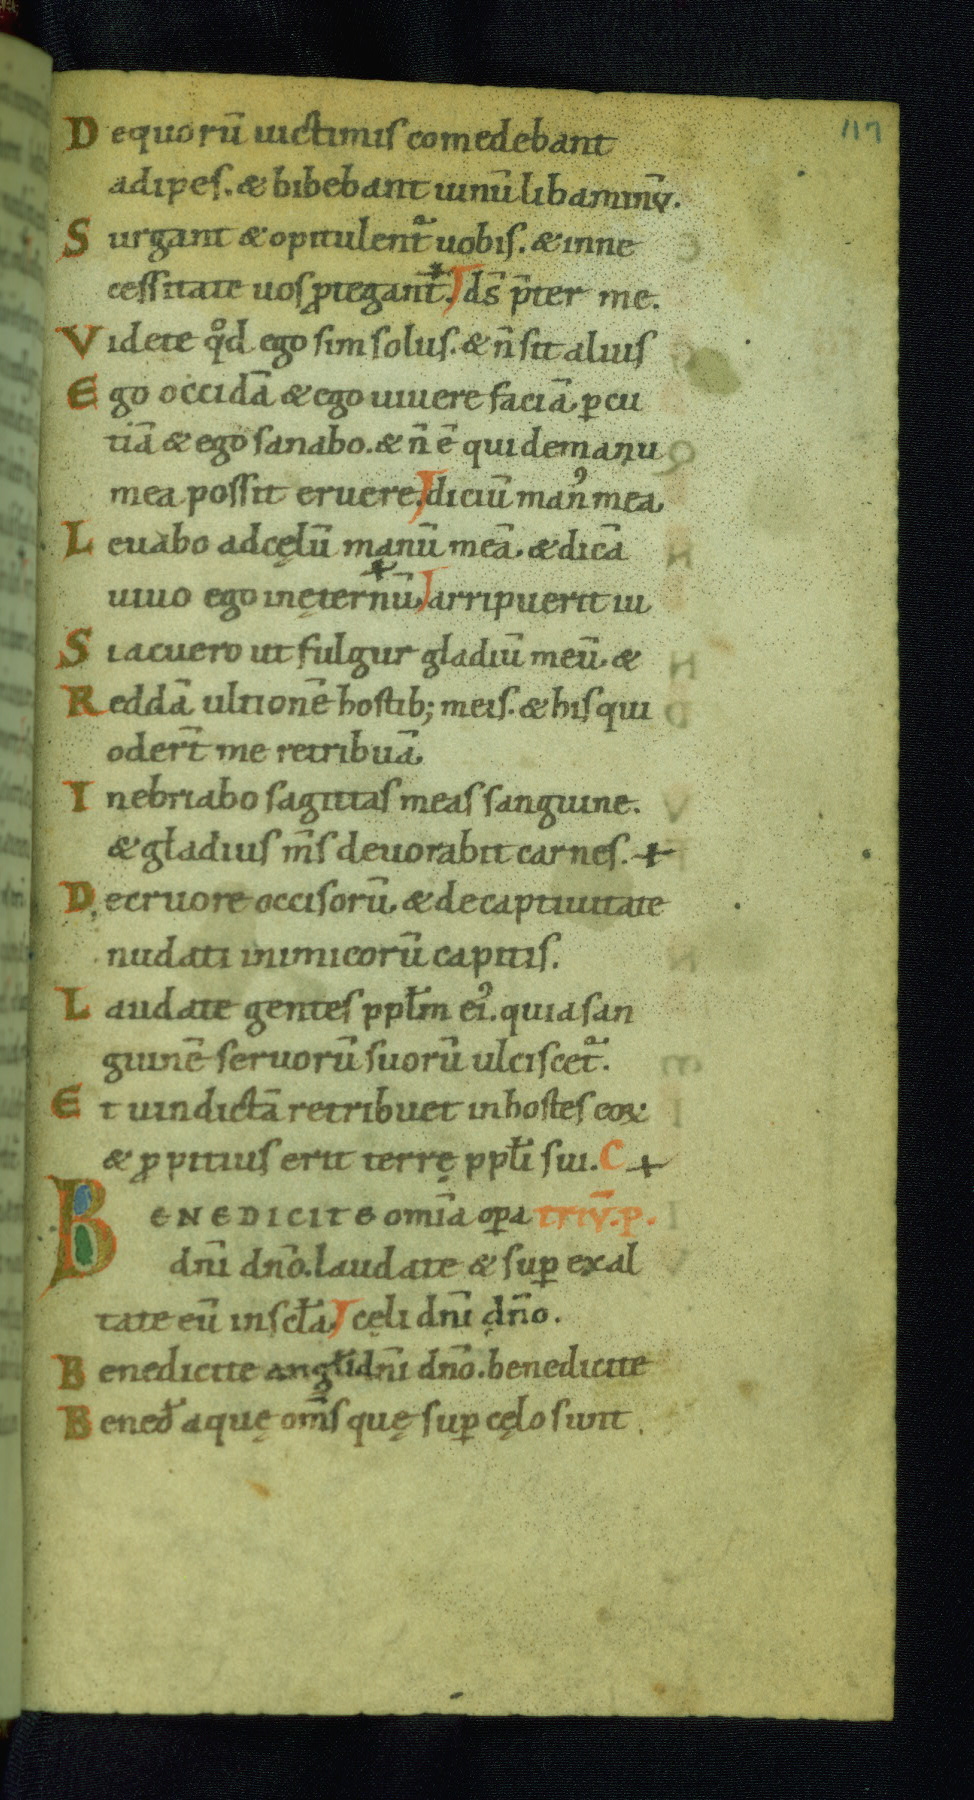 117
De quorū uictimis comedebant
adipes. & bibebant uinū libaminṽ.
Surgant & opitulent᷑ uobis. & in ne
cessitate uos ꝓtegant᷑. ds̄ p̄ter me.
Videte qd̊ ego sim solus. & n̄ sit alius
Ego occidā & ego uiuere faciā, ꝑcu
tiā & ego sanabo. & n̄ ē qui de manu
mea possit eruere, diciū manꝰ mea,
Leuabo ad cęlū manū meā, & dicā
uiuo ego in ęternū, arripuerit iu
Si acuero ut fulgur gladiū meū, &
Reddā ultionē hostib; meis. & his qui
oder̄t me retribuā,
Inebriabo sagittas meas sanguine.
& gladius m̄s deuorabit carnes. +
De cruore occisorū, & de captiuitate
nudati inimicorū capitis.
Laudate gentes ppłm eiꝰ. quia san
guinē seruorū suorū ulciscet᷑.
Et uindictā retribuet in hostes eoꝝ
& ꝓpitius erit terrę ppłi sui. C +
BENEDICITE om̄ia oꝑa triṽ. p.
dn̄i dn̄o. laudate & suꝑ exal
tate eū in scła, cęli dn̄i dn̄o.
Benedicite angłi dn̄i dn̄o. benedicite
Bened̄ aquę om̄s quę suꝑ cęlo sunt.